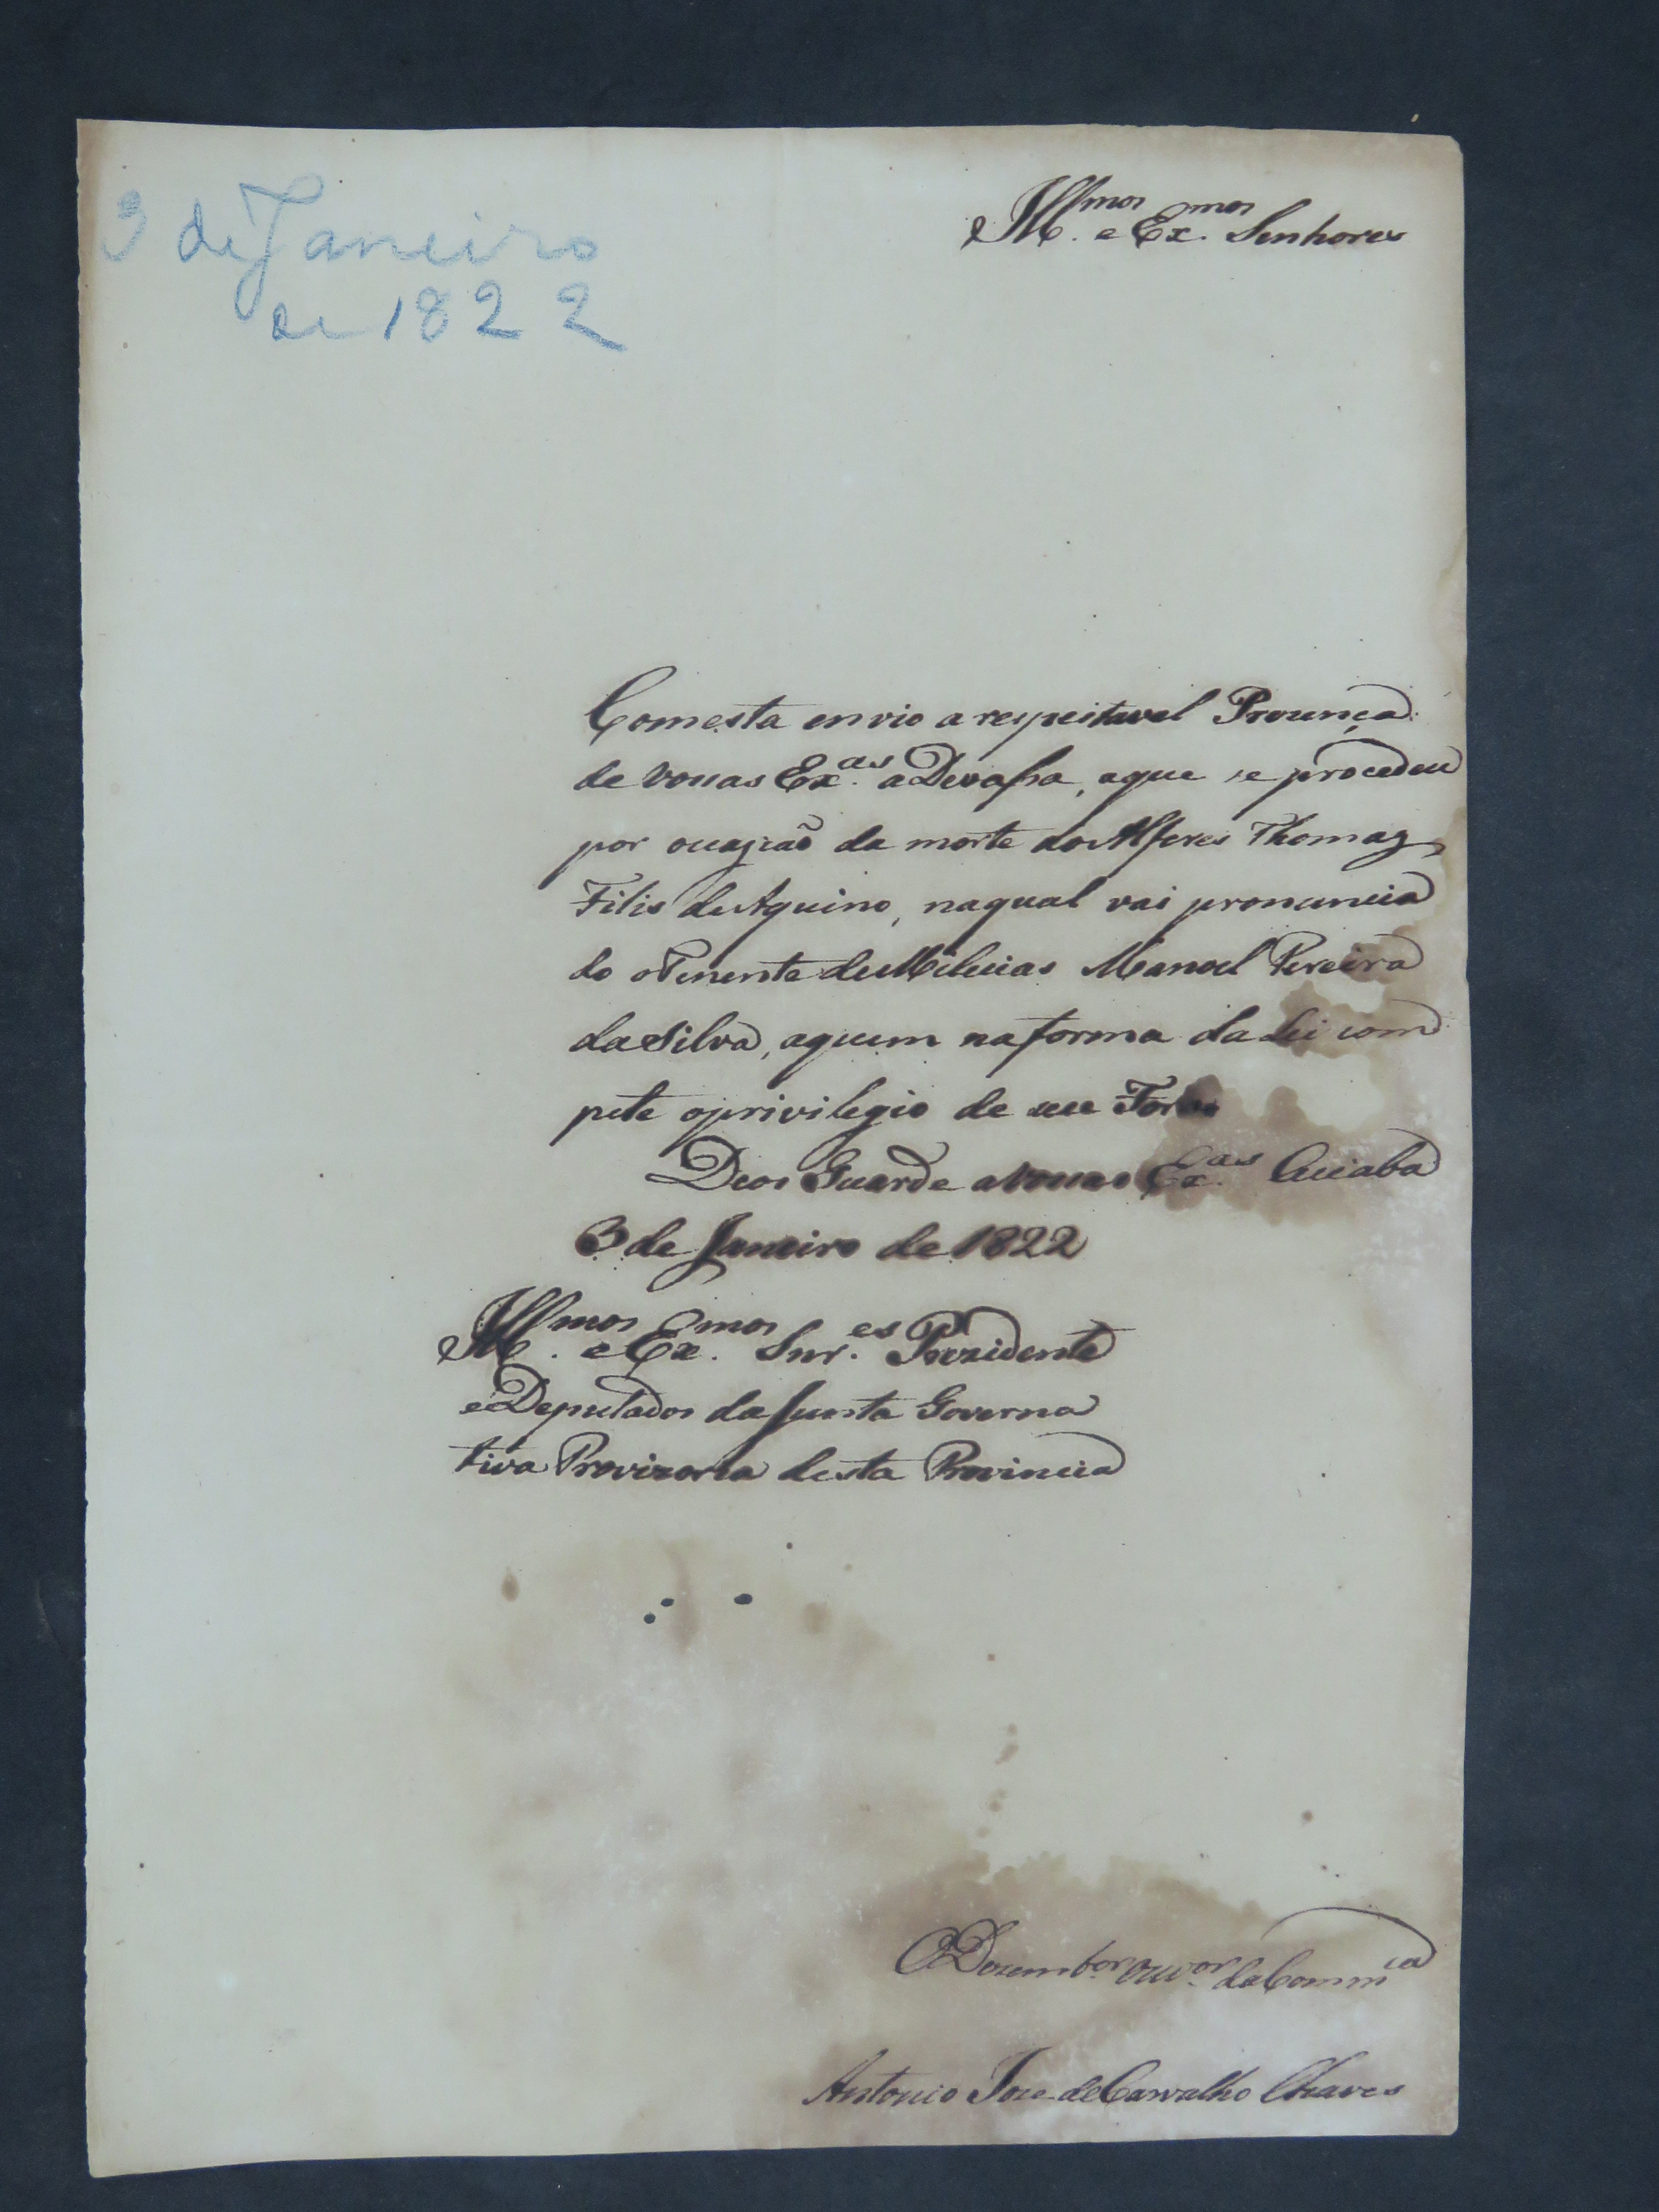 3 de Janeiro
de 1822
Ill.mos e Ex.mos Senhores
Comesta envio a respeitavel Prezença
de vossas Ex.as a Devassa, aque se procedeu
por occazião da morte do Alferes Thomaz
Filis de Aquino, naqual vai pronuncia
do o Tenente de Milicias Manoel Pereira
da Silva, aquem na forma da Lei com
pete oprivilegio de seu Foro
Deos Guarde a vossas Ex.as Cuiabá
3 de Janeiro de 1822
Ill.mos e Ex.mos Snr.es Prezidente
e Deputados da Junta Governa
tiva Provizoria desta Provincia
O Dezemb.or Ouv.or da Comm.ca
Antonio Joze de Carvalho Chaves